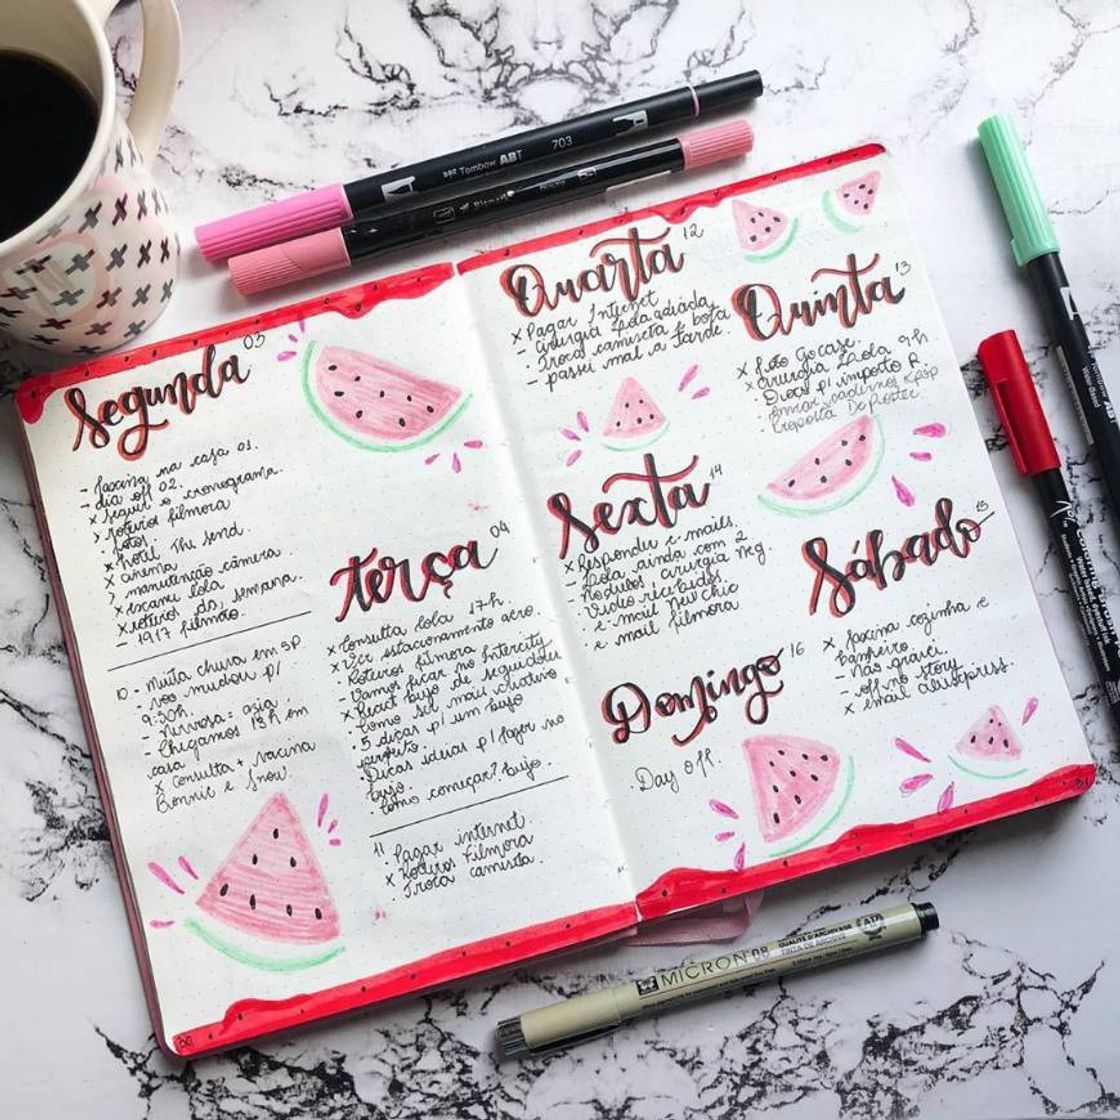 Segunda 03
- faxina na casa 01.
- dia off 02.
x seguir o cronograma.
> roteiros filmora
. fotos.
x hotel The send.
x cinema
> manutenção câmera.
x Lola.
x roteiros da semana.
- 1917 filmão.
10 - Muita chuva em SP
- voo mudou p/
9:50h
- Nervosa: asia
- Chegamos 13h em
casa
x Consulta + vacina
Bonnie e Snow.
terça 04
x Consulta Lola 17h
x Ver estacionamento aero.
. Roteiros filmora
- Vamos ficar no Intercity
x React bujo de seguidores
. Como ser mais criativo
. 5 dicas p/ um bujo
perfeito
. Dicas ideias p/ fazer no
bujo.
. Como começar? bujo.
11 . Pagar internet
x Roteiros Filmora
. Troca camiseta.
30
Quarta 12
x Pagar Internet
- Cirurgia Lola adiada
. Troca camiseta e bota
- passei mal a tarde.
Quinta 13
x foto Gocase.
x cirurgia Lola 9h
. Docs p/ imposto R.
. Enviar cadernos
. Proposta
Sexta 14
x Responder e-mails.
- Lola ainda com 2
Nódulos cirurgia neg.
- Vídeo recebidos.
. e-mail New chic
. e mail filmora
Sábado 15
x faxina cozinha e
banheiro.
- Não gravei.
- off no story
x email aliexpress.
Domingo 16
. Day off.
31
Tombow ABT 703
MICRON 08
QUALITÉ D'ARCHIVE
TINTA DE ARCHIVE